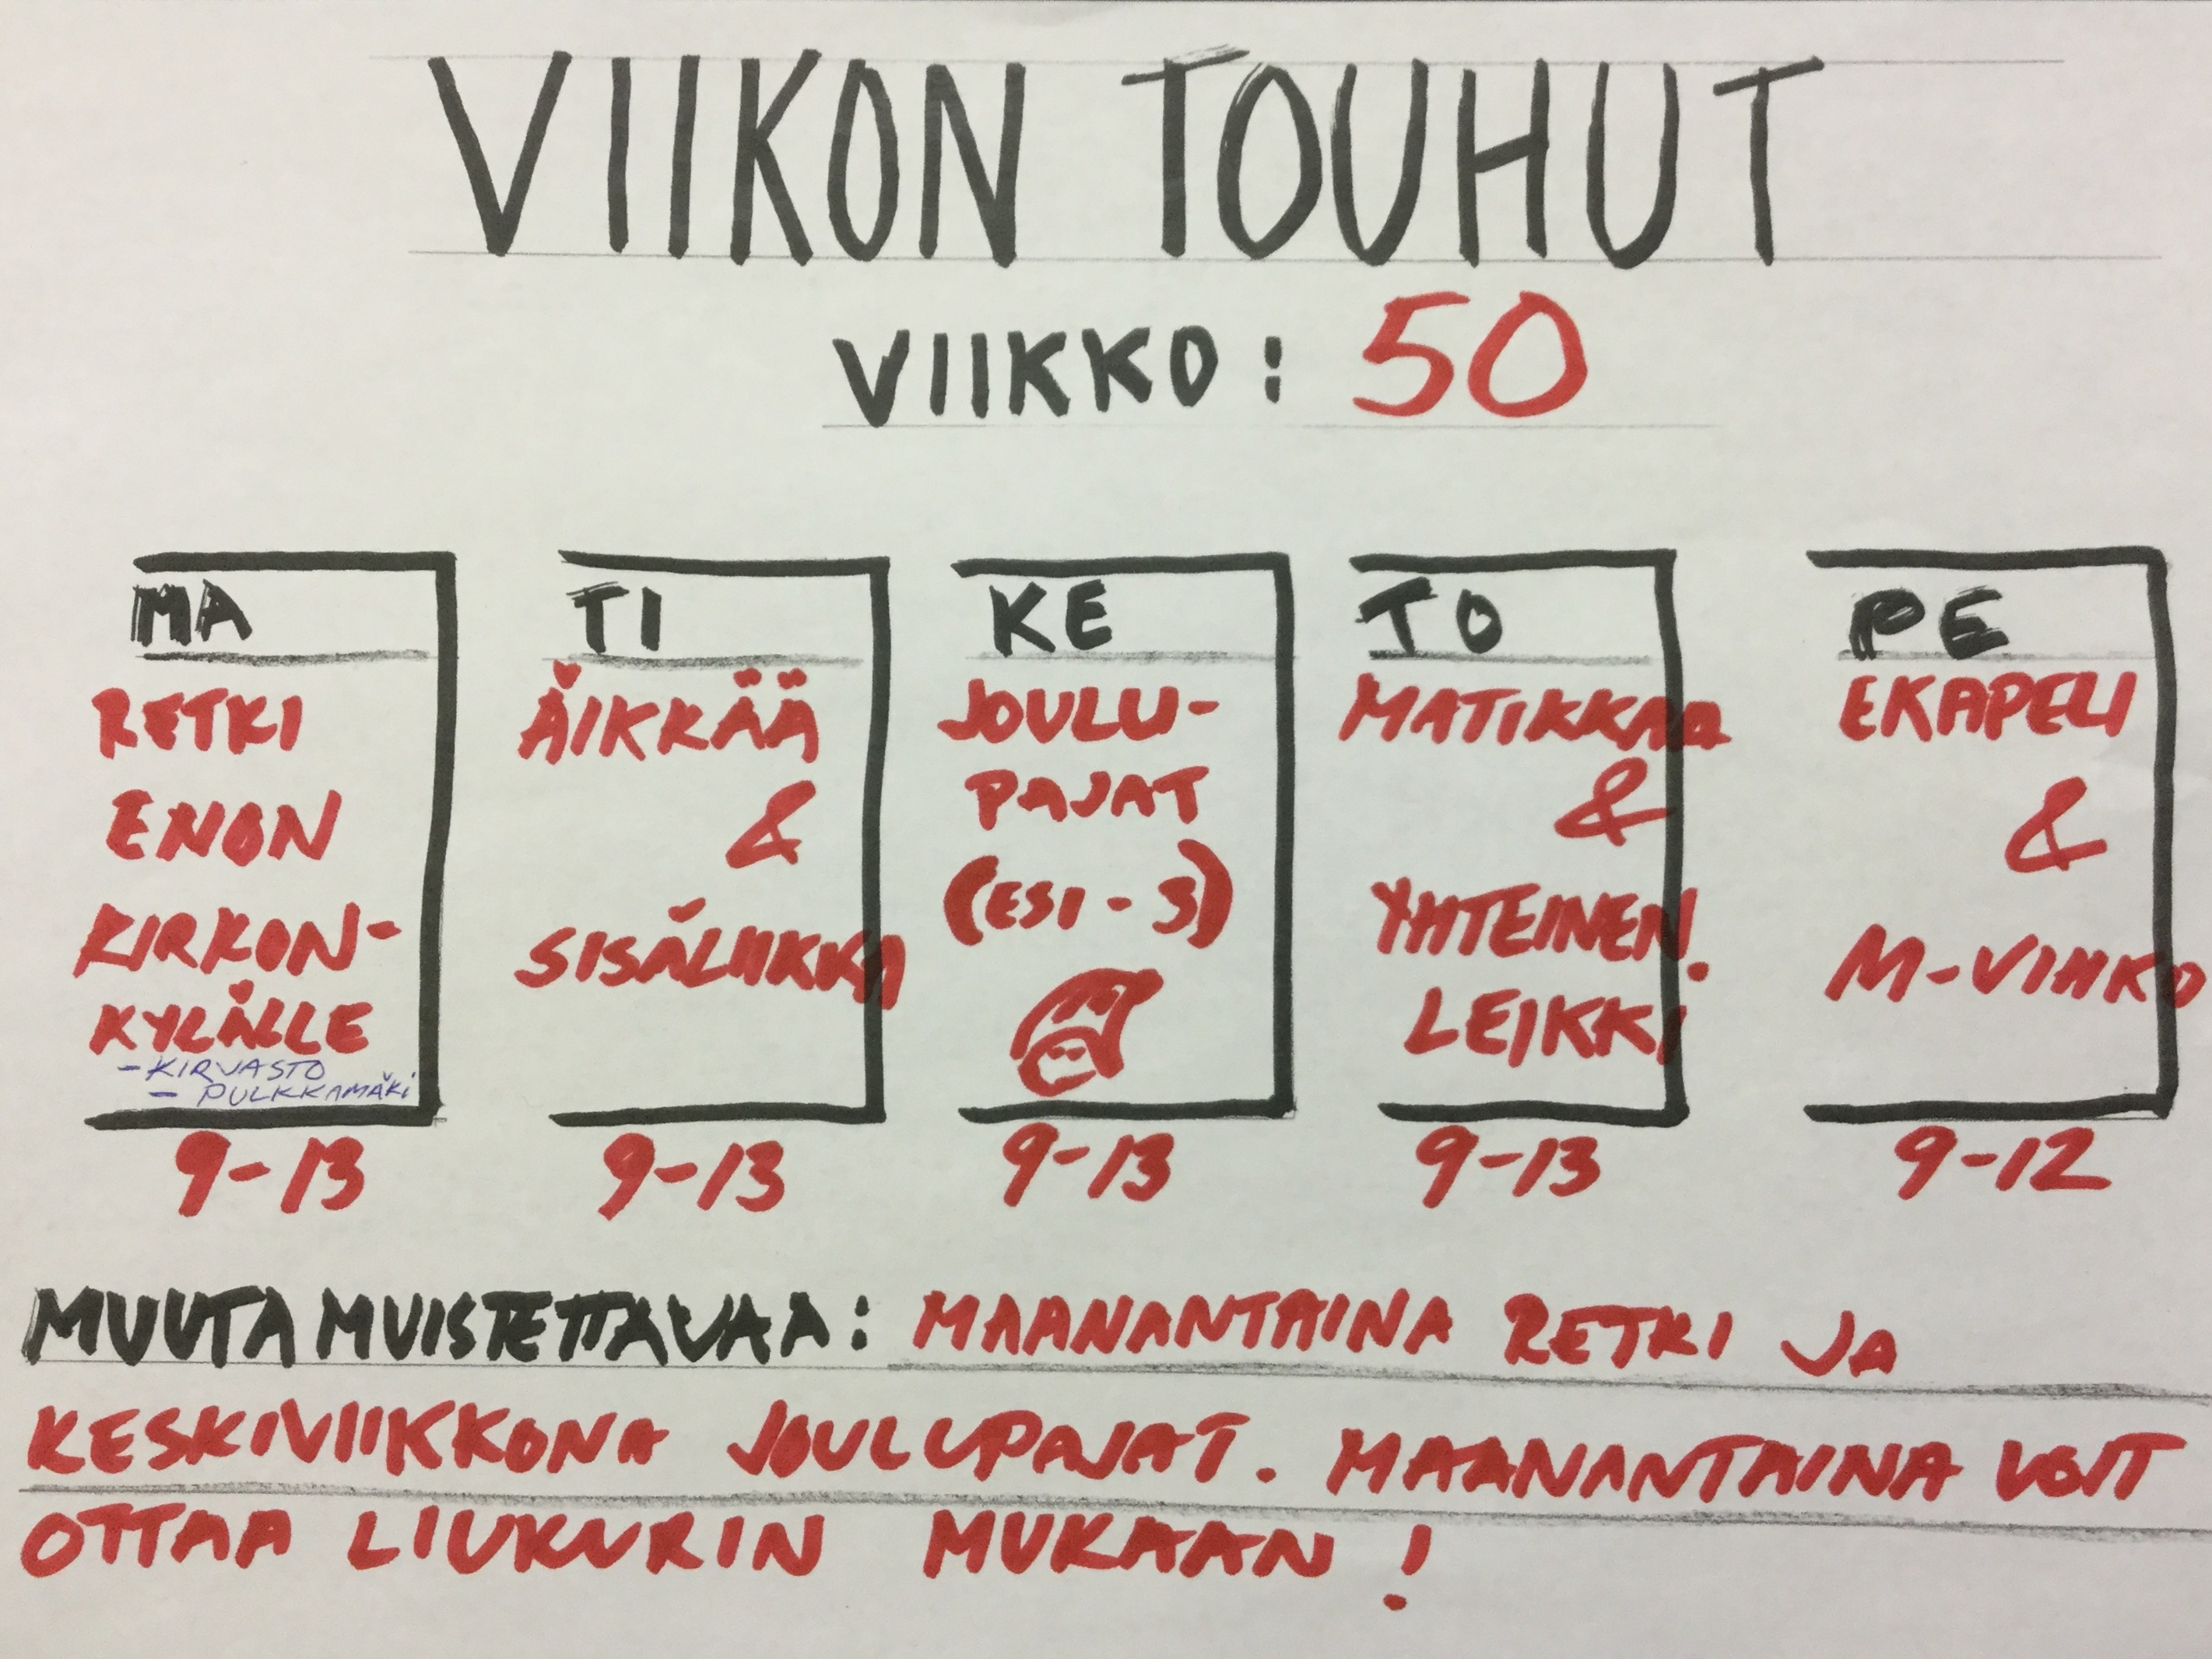 VIIKON TOUHUT
VIIKKO: 50
MA
RETKI
ENON
KIRKON-
KYLÄLLE
- KIRVASTO
- PULKKAMÄKI
9-13
TI
ÄIKKÄÄ
&
SISÄLIIKKA
9-13
KE
JOULU-
PAJAT
(ESI - 3)
9-13
TO
MATIKKAA
&
YHTEINEN
LEIKKI
9-13
PE
EKAPELI
&
M-VIHKO
9-12
MUUTA MUISTETTAVAA: MAANANTAINA RETKI JA
KESKIVIIKKONA JOULUPAJAT. MAANANTAINA VOIT
OTTAA LIUKURIN MUKAAN!